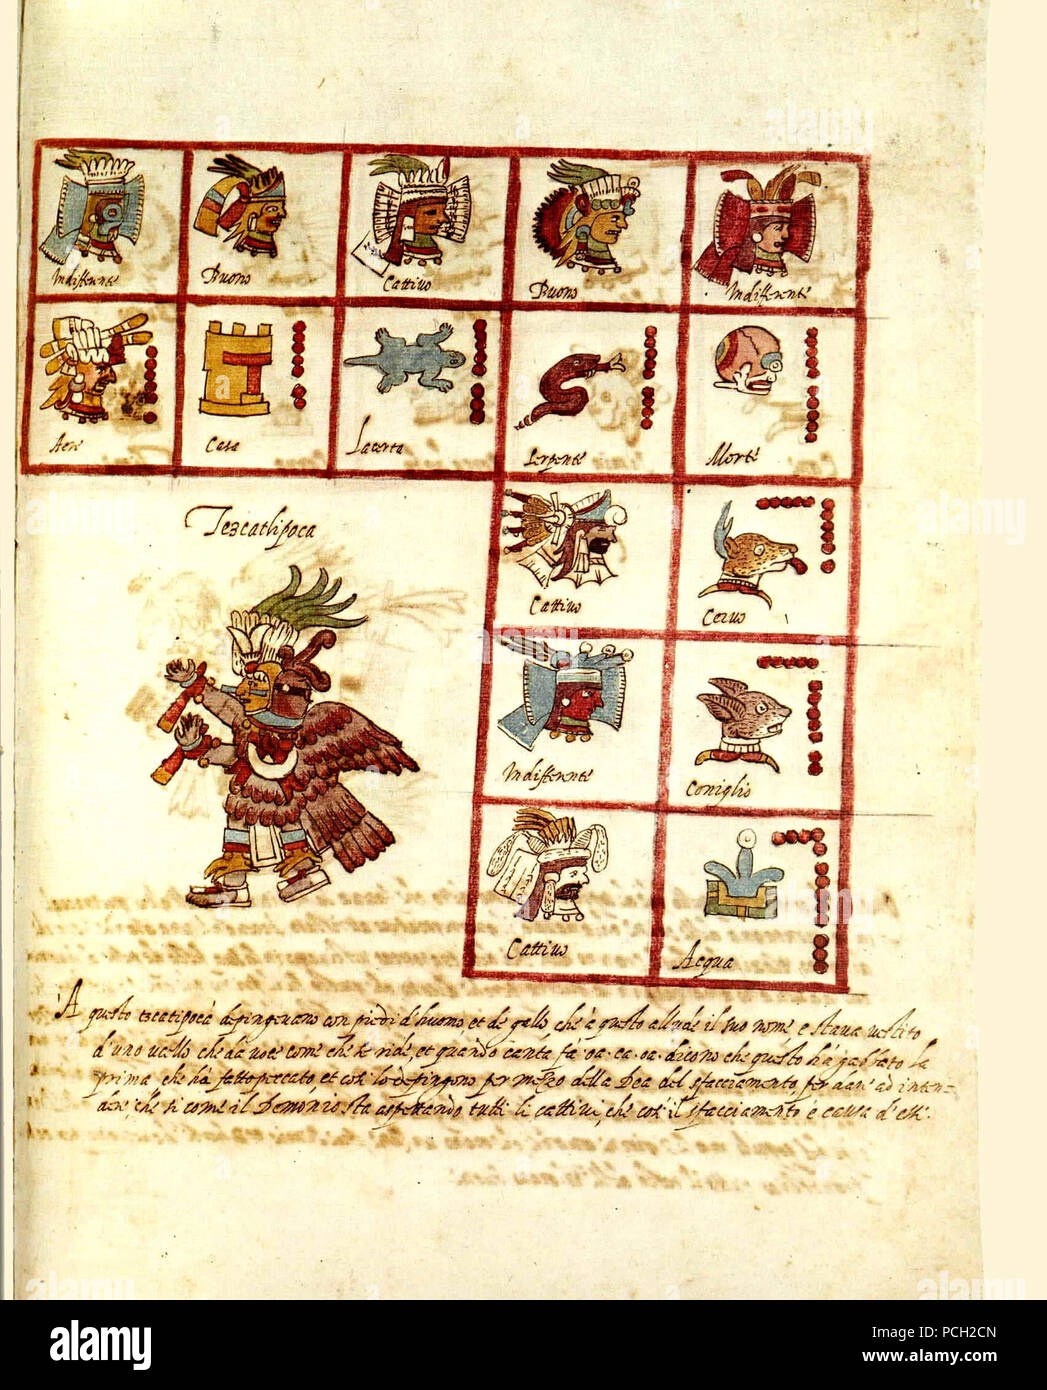 Indifferente Buono Cattivo Buono Indifferente
Aere Casa Lacerta Serpente Morte
Tezcatlipoca
Cattivo Cervo
Indifferente Coniglio
Cattivo Acqua
A questo tzcatlipoca depingevano con piedi d'huomo, et de gallo che à questo allude il suo nome e stava vestito
d'uno uccello che dà voce come che se ride, et quando canta fà oa. ca. oa. dicono che questo hà gabbato la
prima che hà fatto peccato, et così lo depingono per mezzo della Dea del sfacciamento per dare ad inten-
dere che si come il Demonio sta aspettando tutti li cattivi, che così il sfacciamento è causa d'essi.
alamy
Image ID: PCH2CN
www.alamy.com